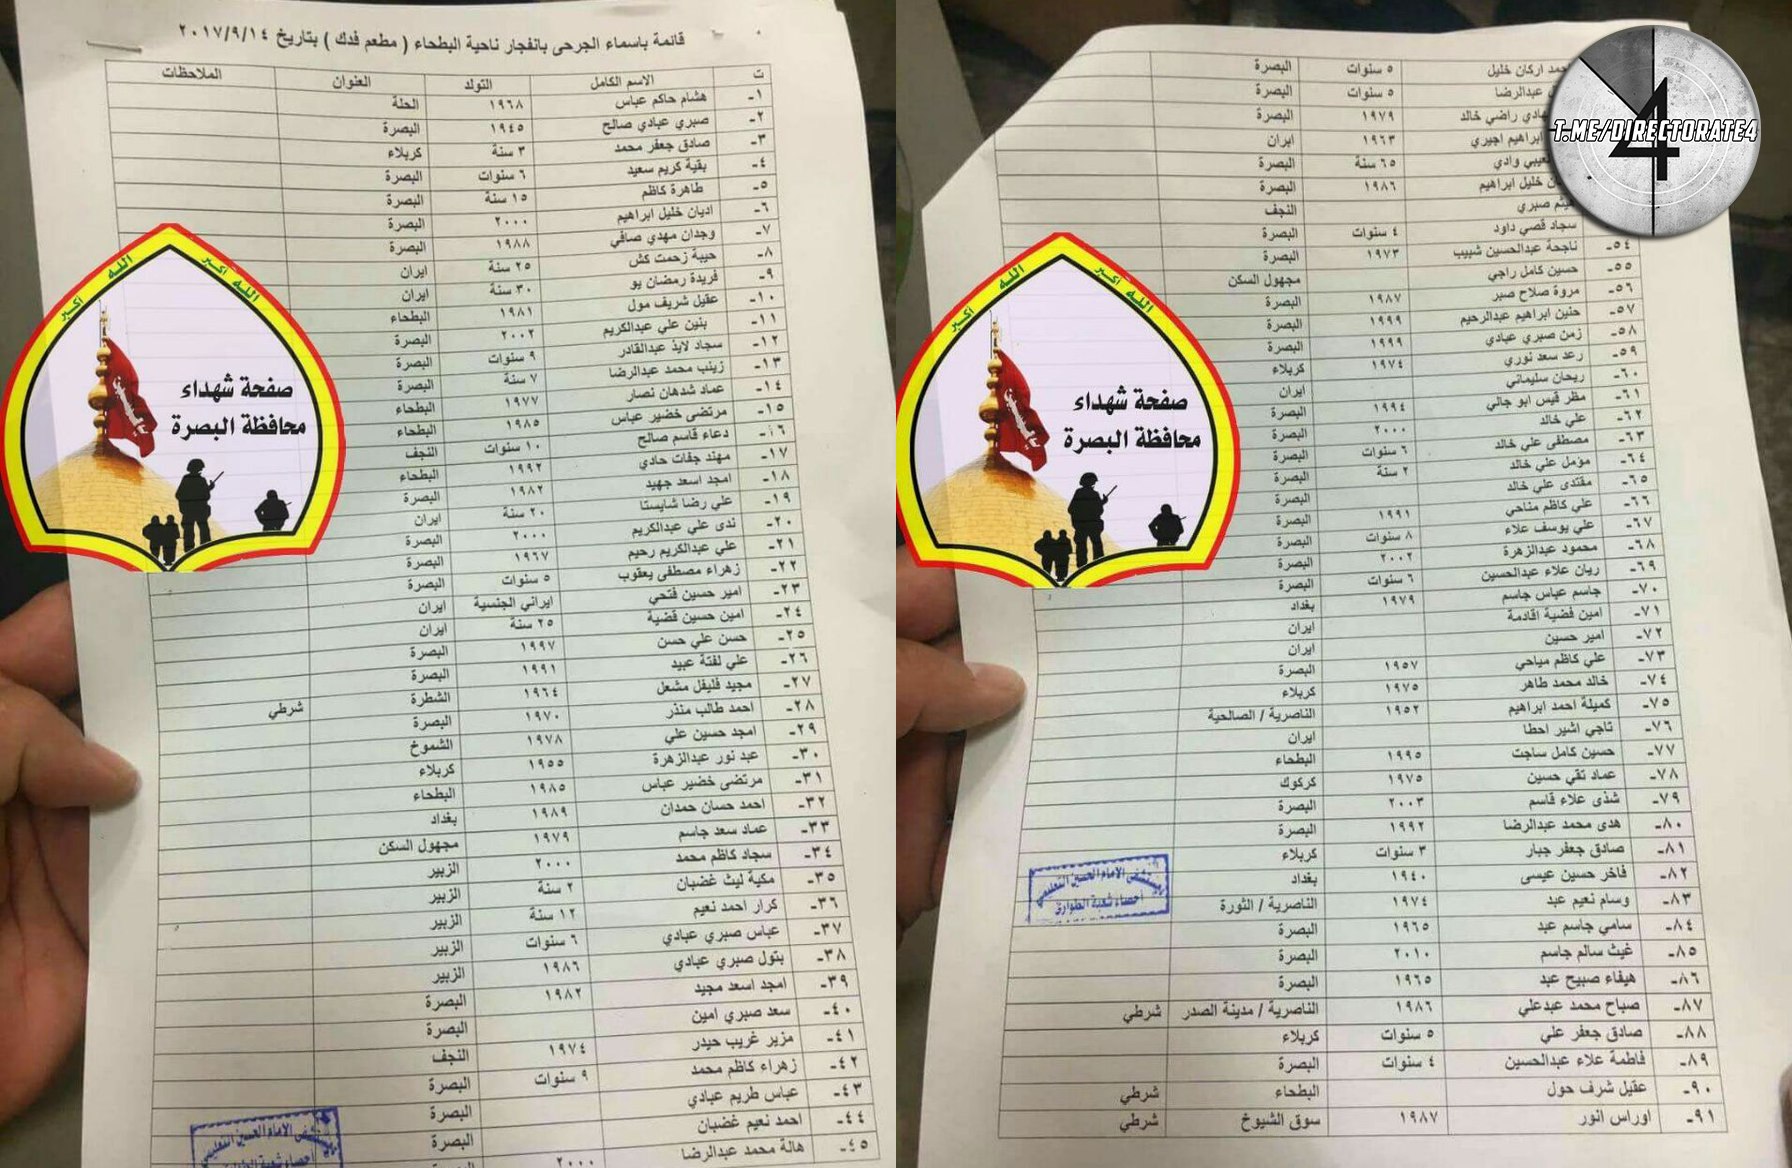 قائمة باسماء الجرحى بانفجار ناحية البطحاء ( مطعم فدك ) بتاريخ ٢٠١٧/٩/١٤
ت الاسم الكامل التولد العنوان الملاحظات
١- هشام حاكم عباس ١٩٦٨ الحلة
٢- صبري عبادي صالح ١٩٤٥ البصرة
٣- صادق جعفر محمد ٣ سنة كربلاء
٤- بقية كريم سعيد ٦ سنوات البصرة
٥- طاهرة كاظم ١٥ سنة البصرة
٦- اديان خليل ابراهيم ٢٠٠٠ البصرة
٧- وجدان مهدي صافي ١٩٨٨ البصرة
٨- حيبة زحمت كش ٢٥ سنة ايران
٩- فريدة رمضان يو ٣٠ سنة ايران
١٠- عقيل شريف مول ١٩٨١ البطحاء
١١- بنين علي عبدالكريم ٢٠٠٢ البصرة
١٢- سجاد لايذ عبدالقادر ٩ سنوات البصرة
١٣- زينب محمد عبدالرضا ٧ سنة البصرة
١٤- عماد شدهان نصار ١٩٧٧ البطحاء
١٥- مرتضى خضير عباس ١٩٨٥ البطحاء
١٦- دعاء قاسم صالح ١٠ سنوات النجف
١٧- مهند جفات حادي ١٩٩٢ البطحاء
١٨- امجد اسعد جهيد ١٩٨٢ البصرة
١٩- علي رضا شايستا ٢٠ سنة ايران
٢٠- ندى علي عبدالكريم ٢٠٠٠ البصرة
٢١- علي عبدالكريم رحيم ١٩٦٧ البصرة
٢٢- زهراء مصطفى يعقوب ٥ سنوات البصرة
٢٣- امير حسين فتحي ايراني الجنسية ايران
٢٤- امين حسين قضية ٢٥ سنة ايران
٢٥- حسن علي حسن ١٩٩٧ البصرة
٢٦- علي لفتة عبيد ١٩٩١ البصرة
٢٧- مجيد فليفل مشعل ١٩٦٤ الشطرة
٢٨- احمد طالب منذر ١٩٧٠ البصرة شرطي
٢٩- امجد حسين علي ١٩٧٨ الشموخ
٣٠- عبد نور عبدالزهرة ١٩٥٥ كربلاء
٣١- مرتضى خضير عباس ١٩٨٥ البطحاء
٣٢- احمد حسان حمدان ١٩٨٩ بغداد
٣٣- عماد سعد جاسم ١٩٧٩ مجهول السكن
٣٤- سجاد كاظم محمد ٢٠٠٠ الزبير
٣٥- مكية ليث غضبان ٢ سنة الزبير
٣٦- كرار احمد نعيم ١٢ سنة الزبير
٣٧- عباس صبري عبادي ٦ سنوات الزبير
٣٨- بتول صبري عبادي ١٩٨٦ الزبير
٣٩- امجد اسعد مجيد ١٩٨٢ البصرة
٤٠- سعد صبري امين البصرة
٤١- مزير غريب حيدر ١٩٧٤ النجف
٤٢- زهراء كاظم محمد ٩ سنوات البصرة
٤٣- عباس طريم عبادي البصرة
٤٤- احمد نعيم غضبان البصرة
٤٥- هالة محمد عبدالرضا ٢٠٠٠
الامام الحسين التعليمي
احصاء شعبة
الله اكبر
الله اكبر
ياحسين
صفحة شهداء
محافظة البصرة
اركان خليل ٥ سنوات البصرة
عبدالرضا ٥ سنوات البصرة
راضي خالد ١٩٧٩ البصرة
ابراهيم اجيري ١٩٦٣ ايران
وادي ٦٥ سنة البصرة
خليل ابراهيم ١٩٨٦ البصرة
صبري النجف
سجاد قصي داود ٤ سنوات البصرة
٥٤- ناجحة عبدالحسين شبيب ١٩٧٣ البصرة
٥٥- حسين كامل راجي مجهول السكن
٥٦- مروة صلاح صبر ١٩٨٧ البصرة
٥٧- حنين ابراهيم عبدالرحيم ١٩٩٩ البصرة
٥٨- زمن صبري عبادي ١٩٩٩ البصرة
٥٩- رعد سعد نوري ١٩٧٤ كربلاء
٦٠- ريحان سليماني ايران
٦١- مظر قيس ابو جالي ١٩٩٤ البصرة
٦٢- علي خالد ٢٠٠٠ البصرة
٦٣- مصطفى علي خالد ٦ سنوات البصرة
٦٤- مؤمل علي خالد ٢ سنة البصرة
٦٥- مقتدى علي خالد البصرة
٦٦- علي كاظم مناحي ١٩٩١ البصرة
٦٧- علي يوسف علاء ٨ سنوات البصرة
٦٨- محمود عبدالزهرة ٢٠٠٢ البصرة
٦٩- ريان علاء عبدالحسين ٦ سنوات البصرة
٧٠- جاسم عباس جاسم ١٩٧٩ بغداد
٧١- امين قضية اقادمة ايران
٧٢- امير حسين ايران
٧٣- علي كاظم مياحي ١٩٥٧ البصرة
٧٤- خالد محمد طاهر ١٩٧٥ كربلاء
٧٥- كميلة احمد ابراهيم ١٩٥٢ الناصرية / الصالحية
٧٦- تاجي اشير احطا ايران
٧٧- حسين كامل ساجت ١٩٩٥ البطحاء
٧٨- عماد تقي حسين ١٩٧٥ كركوك
٧٩- شذى علاء قاسم ٢٠٠٣ البصرة
٨٠- هدى محمد عبدالرضا ١٩٩٢ البصرة
٨١- صادق جعفر جبار ٣ سنوات كربلاء
٨٢- فاخر حسين عيسى ١٩٤٠ بغداد
٨٣- وسام نعيم عبد ١٩٧٤ الناصرية / الثورة
٨٤- سامي جاسم عبد ١٩٦٥ البصرة
٨٥- غيث سالم جاسم ٢٠١٠ البصرة
٨٦- هيفاء صبيح عبد ١٩٦٥ البصرة
٨٧- صباح محمد عبدعلي ١٩٨٦ الناصرية / مدينة الصدر شرطي
٨٨- صادق جعفر علي ٥ سنوات كربلاء
٨٩- فاطمة علاء عبدالحسين ٤ سنوات البصرة
٩٠- عقيل شرف حول البطحاء شرطي
٩١- اوراس انور ١٩٨٧ سوق الشيوخ شرطي
مستشفى الامام الحسين التعليمي
احصاء شعبة الطوارئ
الله اكبر
الله اكبر
ياحسين
صفحة شهداء
محافظة البصرة
4
T.ME/DIRECTORATE4